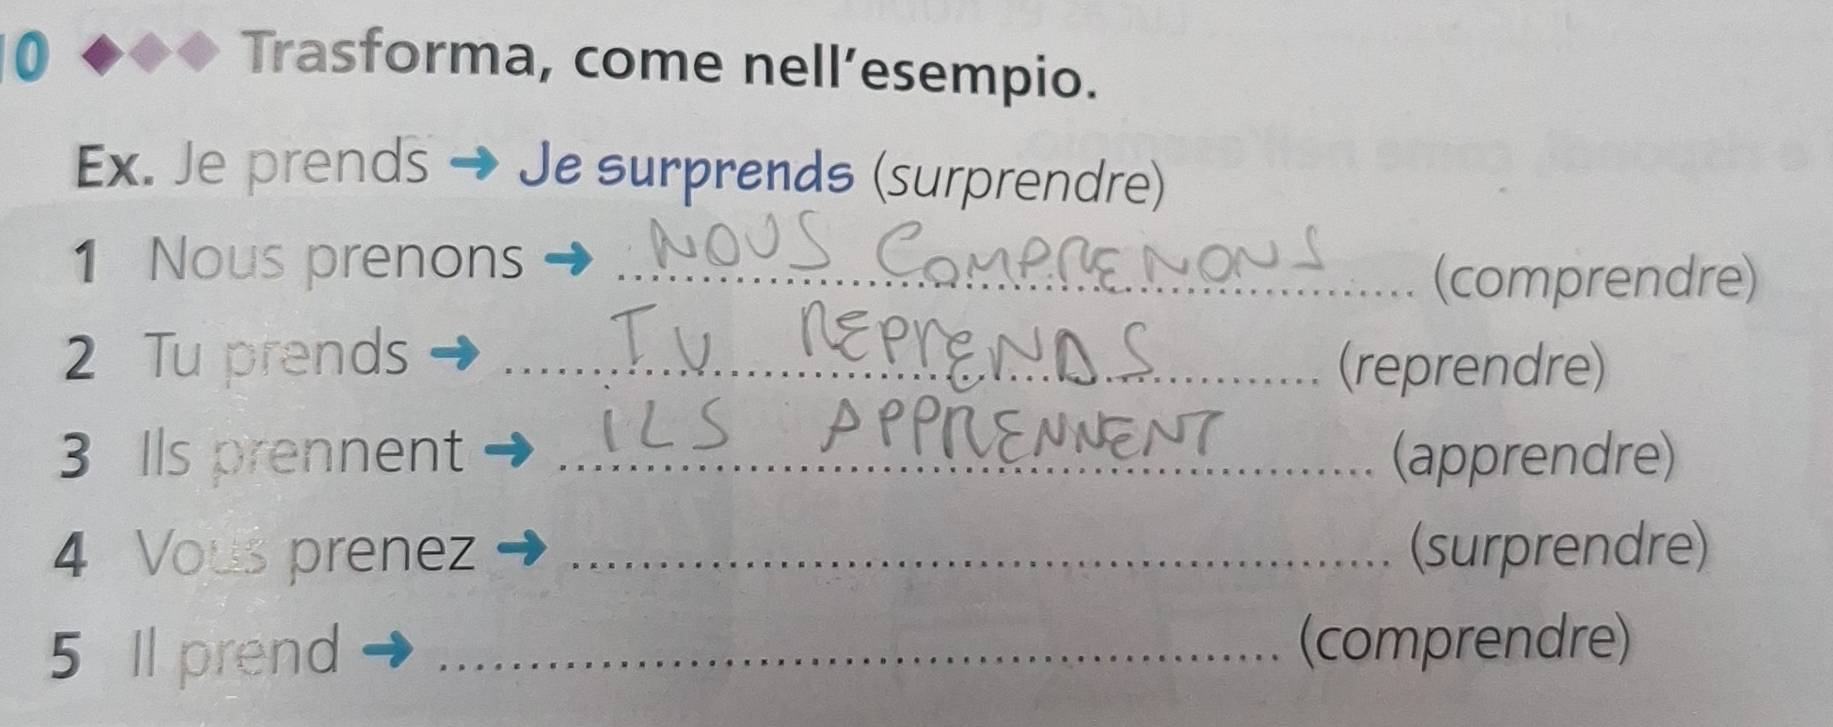 10 Trasforma, come nell'esempio.
Ex. Je prends → Je surprends (surprendre)
1 Nous prenons → NOUS COMPRENONS (comprendre)
2 Tu prends → TU REPRENDS (reprendre)
3 Ils prennent → ILS APPRENNENT (apprendre)
4 Vous prenez → (surprendre)
5 Il prend → (comprendre)